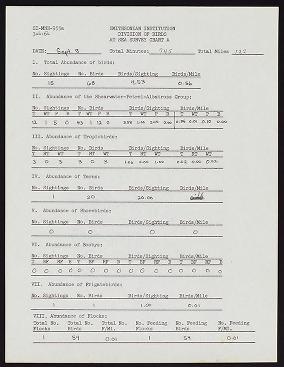 SI-MNH-959a
SMITHSONIAN INSTITUTION
DIVISION OF BIRDS
AT SEA SURVEY CHART A
DATE: Sept. 3 Total Minutes: 745 Total Miles 122
I. Total Abundance of birds:
No. Sightings No. Birds Birds/Sighting Birds/Mile
15 68 4.53 0.56
II. Abundance of the Shearwater-Petrel-Albatross Group:
No. Sightings No. Birds Birds/Sighting Birds/Mile
T WT P B T WT P B T WT P B T WT P B
III. Abundance of Tropicbirds:
No. Sightings No. Birds Birds/Sighting Birds/Mile
3 0 3 3 0 3 1.00 0.00 1.00
IV. Abundance of Terns:
No. Sightings No. Birds Birds/Sighting Birds/Mile
1 20 20.00
V. Abundance of Shorebirds:
No. Sightings No. Birds Birds/Sighting Birds/Mile
0 0 0 0
VI. Abundance of Boobys:
No. Sightings No. Birds Birds/Sighting Birds/Mile
0 0 0 0 0 0 0 0 0 0 0 0 0 0 0 0
VII. Abundance of Frigatebirds:
No. Sightings No. Birds Birds/Sighting Birds/Mile
1 1 1.00 0.01
VIII. Abundance of Flocks:
Total No. Total No. Total No. Feeding No. Feeding No. Feeding
Flocks Birds F/Mi. Flocks Birds F/Mile
1 59 0.01 1 59 0.01